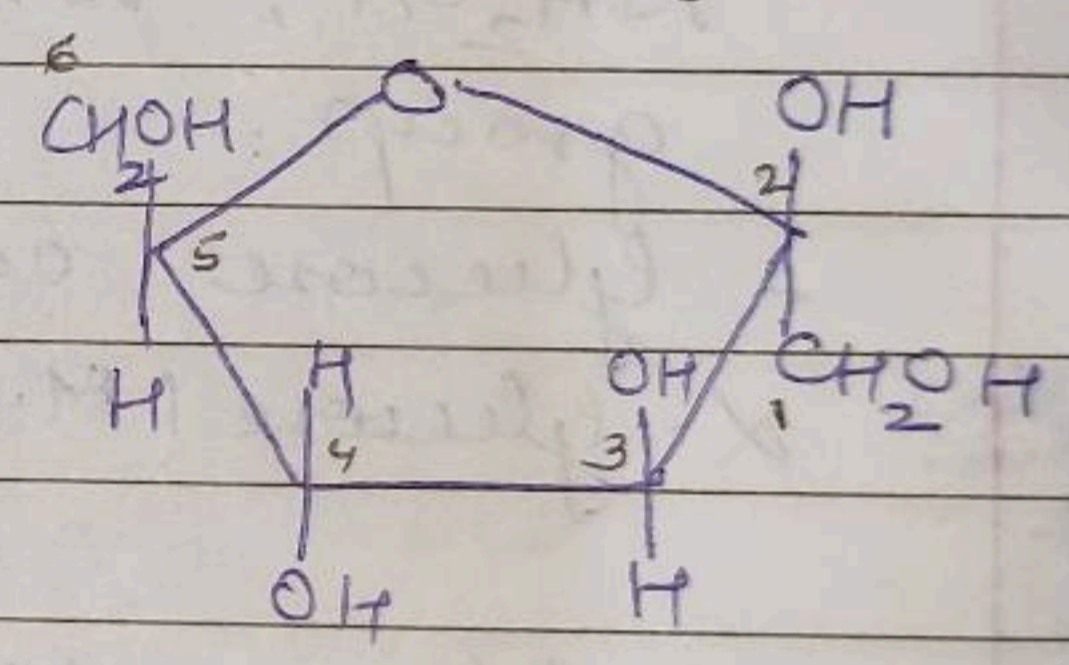 6
CH2OH
O
OH
2
5
H
H
4
OH
3
CH2OH
1
OH
H